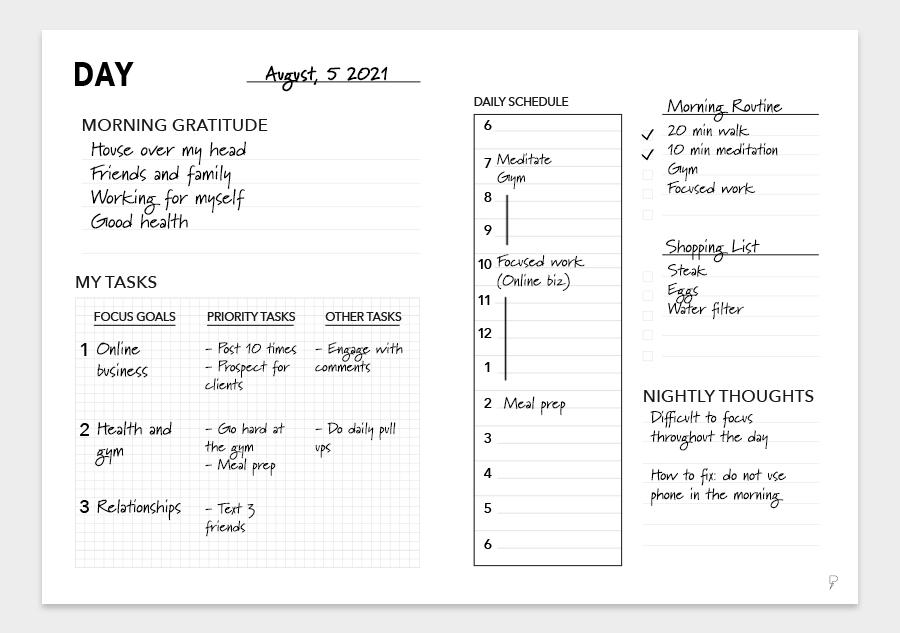 DAY
August, 5 2021
MORNING GRATITUDE
House over my head
Friends and family
Working for myself
Good health
MY TASKS
FOCUS GOALS PRIORITY TASKS OTHER TASKS
1 Online
business
- Post 10 times
- Prospect for
clients
- Engage with
comments
2 Health and
gym
- Go hard at
the gym
- Meal prep
- Do daily pull
ups
3 Relationships
- Text 3
friends
DAILY SCHEDULE
6
7 Meditate
Gym
8
9
10 Focused work
(Online biz)
11
12
1
2 Meal prep
3
4
5
6
Morning Routine
20 min walk
10 min meditation
Gym
Focused work
Shopping List
Steak
Eggs
Water filter
NIGHTLY THOUGHTS
Difficult to focus
throughout the day
How to fix: do not use
phone in the morning